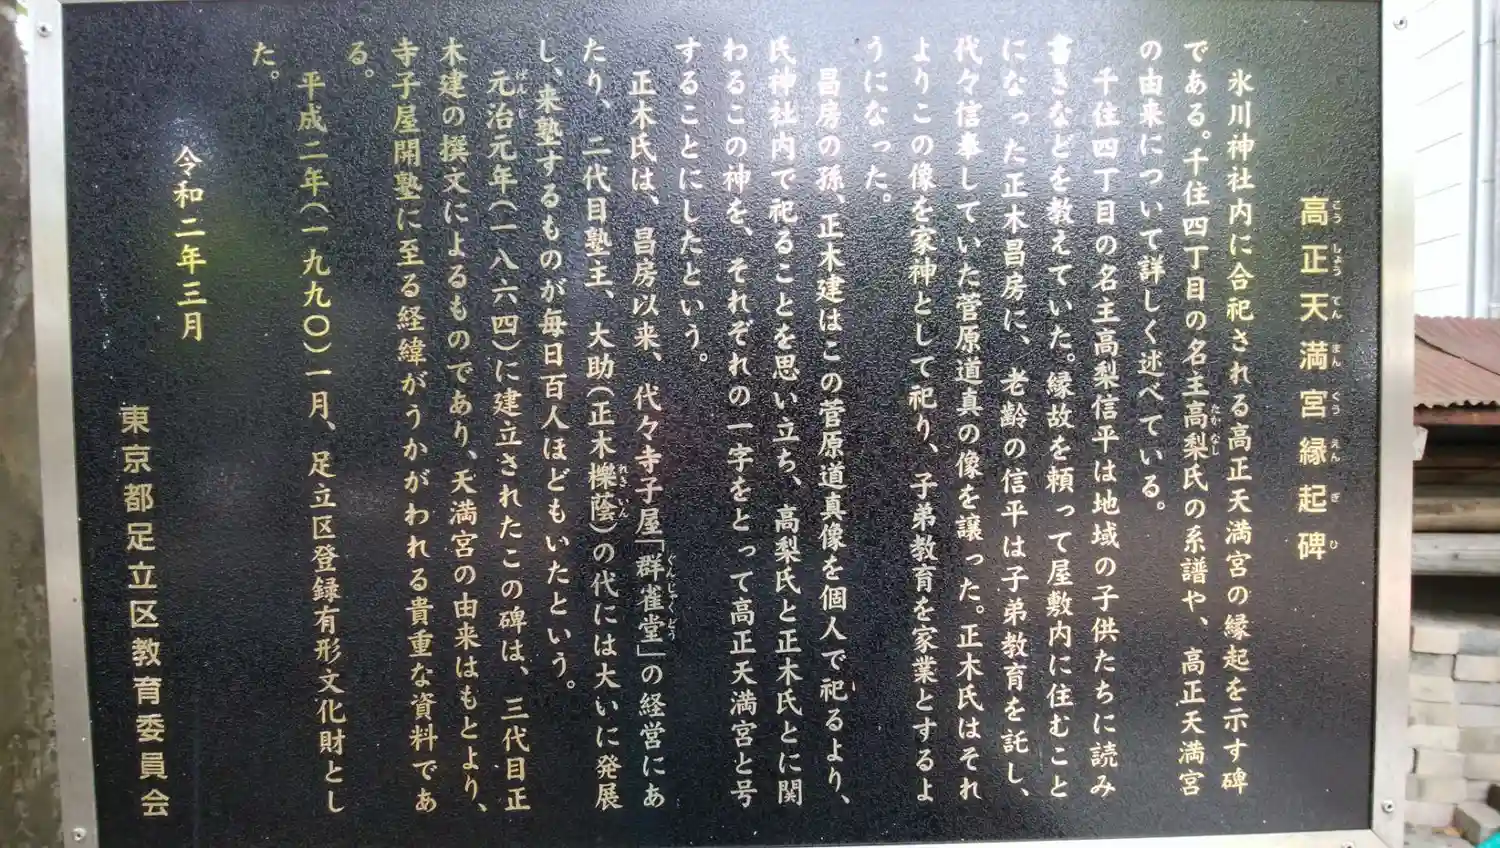 高正天満宮縁起碑
氷川神社内に合祀される高正天満宮の縁起を示す碑
である。千住四丁目の名主高梨氏の系譜や、高正天満宮
の由来について詳しく述べている。
千住四丁目の名主高梨信平は地域の子供たちに読み
書きなどを教えていた。縁故を頼って屋敷内に住むこと
になった正木昌房に、老齢の信平は子弟教育を託し、
代々信奉していた菅原道真の像を譲った。正木氏はそれ
よりこの像を家神として祀り、子弟教育を家業とするよ
うになった。
昌房の孫、正木建はこの菅原道真像を個人で祀るより、
氏神社内で祀ることを思い立ち、高梨氏と正木氏とに関
わるこの神を、それぞれの一字をとって高正天満宮と号
することにしたという。
正木氏は、昌房以来、代々寺子屋「群雀堂」の経営にあ
たり、二代目塾主、大助(正木櫟蔭)の代には大いに発展
し、来塾するものが毎日百人ほどもいたという。
元治元年(一八六四)に建立されたこの碑は、三代目正
木建の撰文によるものであり、天満宮の由来はもとより、
寺子屋開塾に至る経緯がうかがわれる貴重な資料であ
る。
平成二年(一九九〇)一月、足立区登録有形文化財とし
た。
令和二年三月
東京都足立区教育委員会